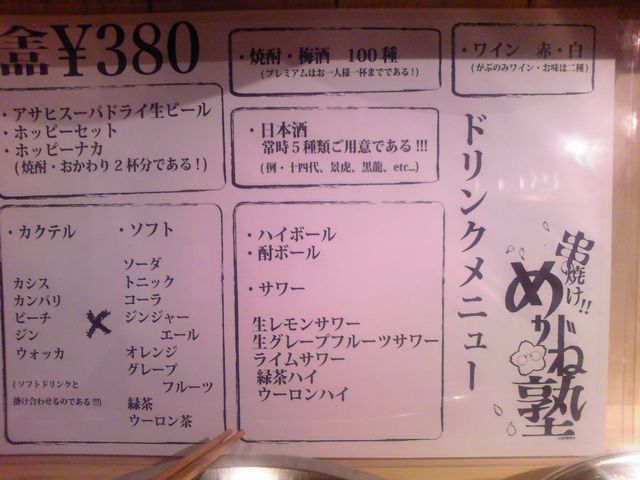 全品¥380
・アサヒスーパドライ生ビール
・ホッピーセット
・ホッピーナカ
(焼酎・おかわり２杯分である!)
・焼酎・梅酒　100種
(プレミアムはお一人様一杯までである!)
・ワイン　赤・白
(がぶのみワイン・お味は二種)
・日本酒
常時５種類ご用意である!!!
(例・十四代、景虎、黒龍、etc...)
・カクテル
カシス
カンパリ
ピーチ
ジン
ウォッカ
(ソフトドリンクと
掛け合わせるのである!!!)
×
・ソフト
ソーダ
トニック
コーラ
ジンジャー
エール
オレンジ
グレープ
フルーツ
緑茶
ウーロン茶
・ハイボール
・酎ボール
・サワー
生レモンサワー
生グレープフルーツサワー
ライムサワー
緑茶ハイ
ウーロンハイ
ドリンクメニュー
串焼け!!
めがね塾